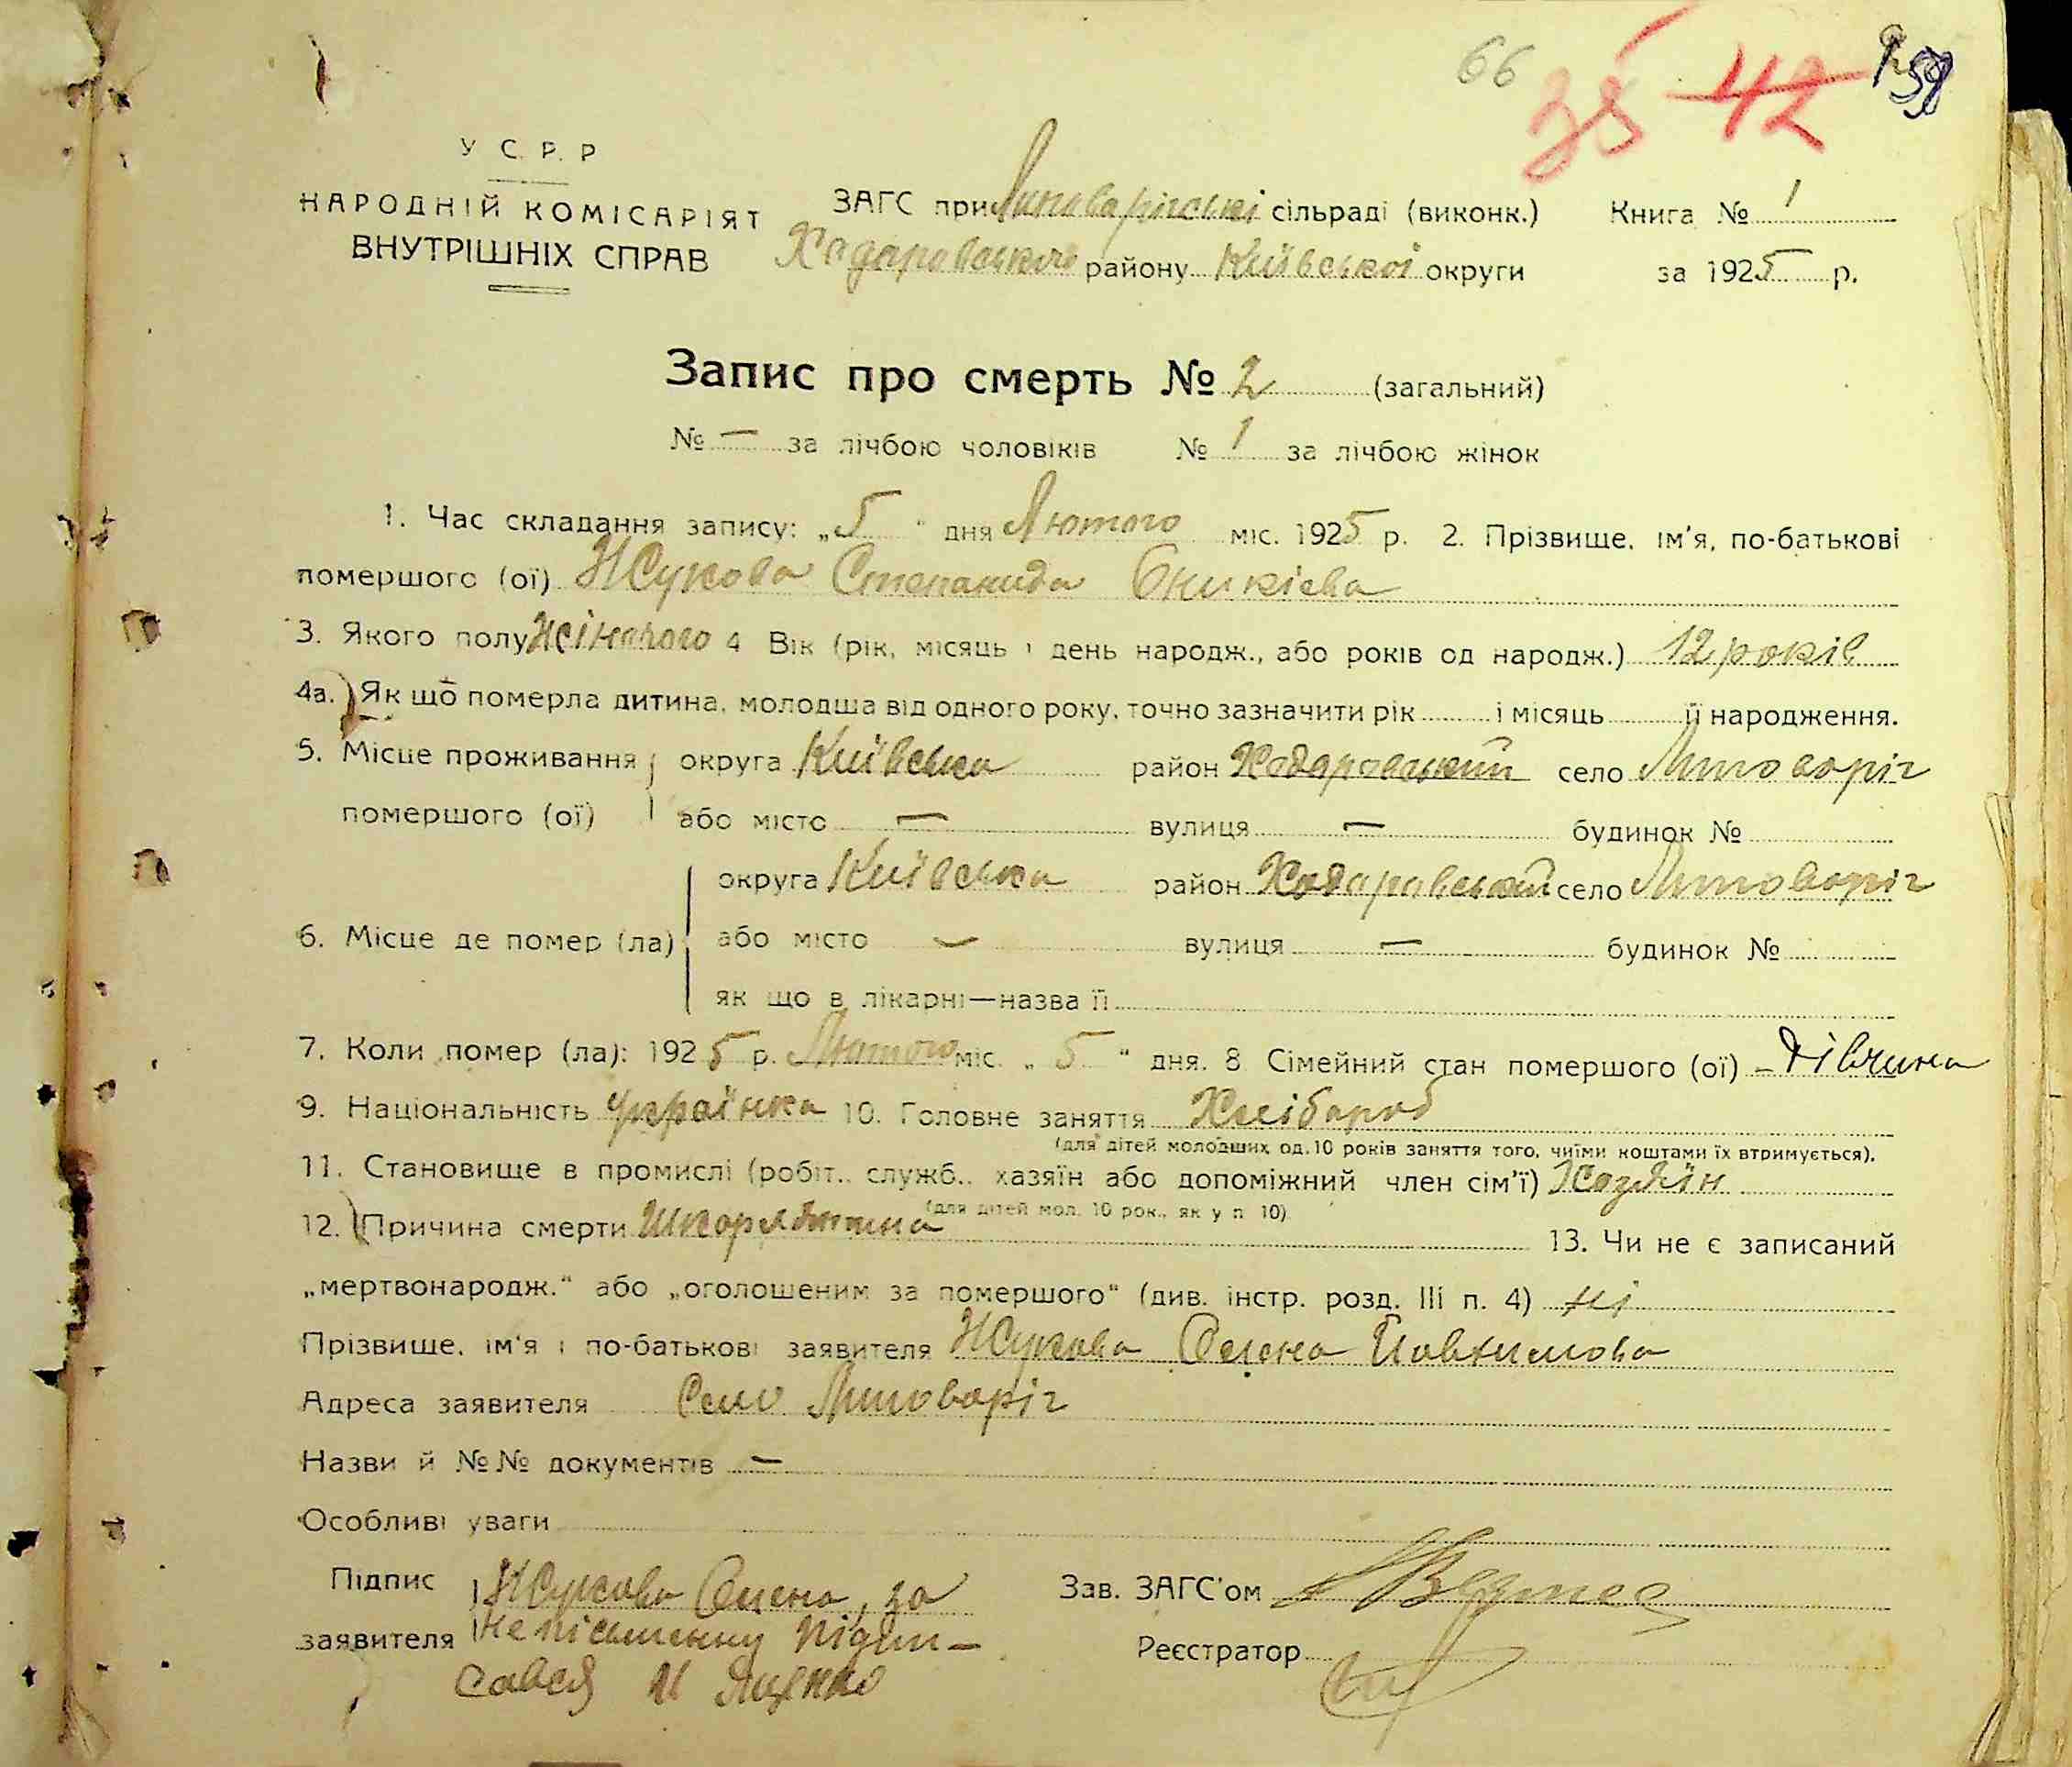 66 35 42 59
У С. Р. Р
НАРОДНІЙ КОМІСАРІЯТ
ВНУТРІШНІХ СПРАВ
ЗАГС при Липоварізські сільраді (виконк.)
Ходоровського району Київської округи
Книга № 1
за 1925 р.
Запис про смерть № 2 (загальний)
№ — за лічбою чоловіків № 1 за лічбою жінок
1. Час складання запису: „5" дня Лютого міс. 1925 р. 2. Прізвище, ім'я, по-батькові
помершого (ої) Жукова Степанида Оникієва
3. Якого полу Жіночого 4 Вік (рік, місяць і день народж., або років од народж.) 12 років
4а. Як що померла дитина, молодша від одного року, точно зазначити рік і місяць її народження.
5. Місце проживання округа Київська район Ходоровський село Липоворіг
помершого (ої) або місто — вулиця — будинок №
округа Київська район Ходоровський село Липоворіг
6. Місце де помер (ла) або місто — вулиця — будинок №
як що в лікарні—назва її
7. Коли помер (ла): 1925 р. Лютого міс. „5" дня. 8 Сімейний стан помершого (ої) – дівчина
9. Національність українка 10. Головне заняття Хлібороб
(для дітей молодших од 10 років заняття того, чиїми коштами їх втримується).
11. Становище в промислі (робіт., служб., хазяїн або допоміжний член сім'ї) Хозяїн
(для дітей мол. 10 рок., як у п 10)
12. Причина смерти Шкорлятина 13. Чи не є записаний
„мертвонародж." або „оголошеним за помершого" (див. інстр. розд. III п. 4) ні
Прізвище, ім'я і по-батькові заявителя Жукова Олена Йовхимова
Адреса заявителя Село Липоворіг
Назви й №№ документів —
Особливі уваги
Підпис Жукова Олена, за
заявителя неписьменну підпи-
сався И Яценко
Зав. ЗАГС'ом
Реєстратор